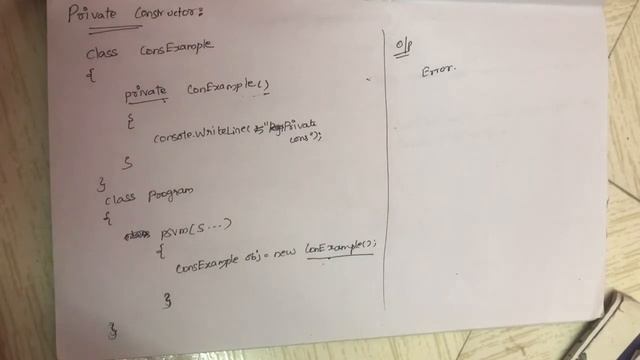 Private Constructor:
class ConsExample
{
private ConExample()
{
Console.WriteLine("Private
cons");
}
}
class Program
{
psvm(S...)
{
ConsExample obj = new ConExample();
}
}
O/P
Error.